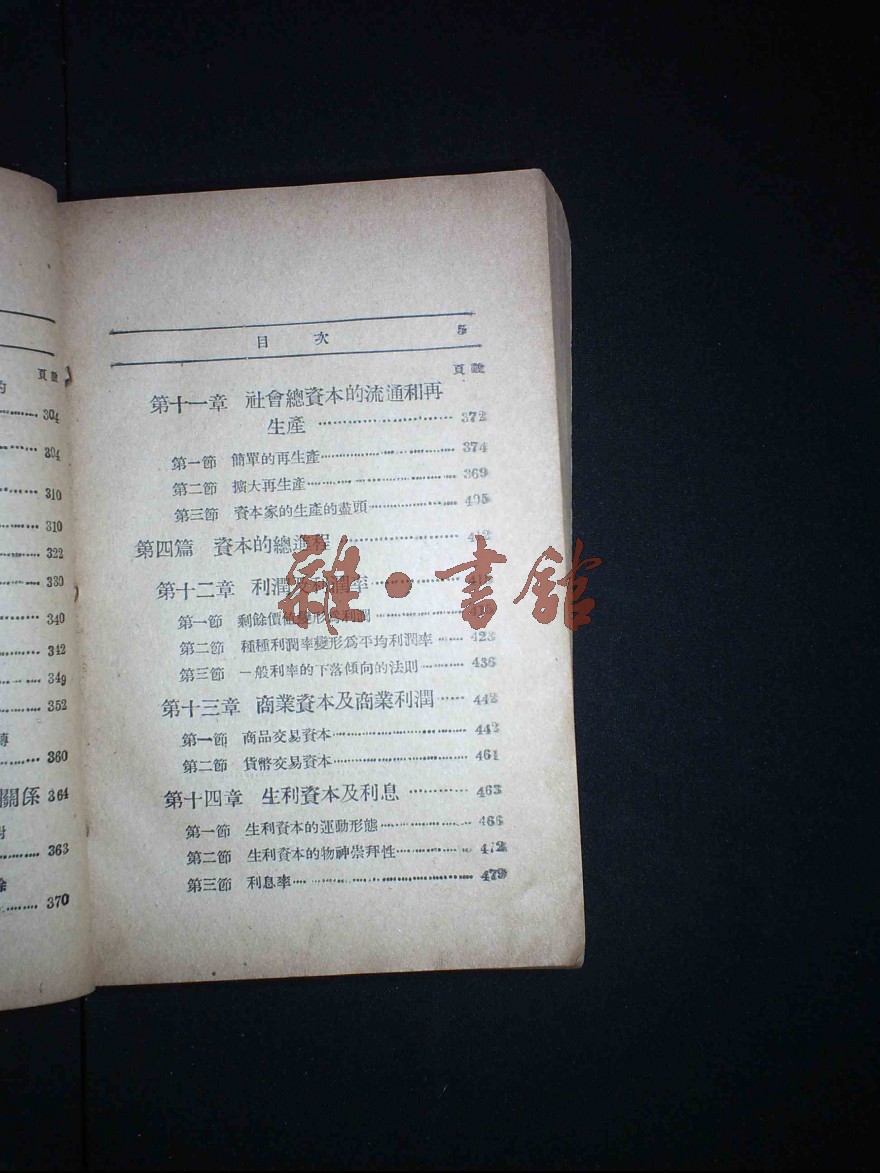 的
頁數
304
304
310
310
322
330
340
342
349
352
360
關係 364
363
370
目 次 5
頁數
第十一章 社會總資本的流通和再
生產 372
第一節 簡單的再生產 374
第二節 擴大再生產 369
第三節 資本家的生產的盡頭 405
第四篇 資本的總進程
第十二章 利潤及利潤率
第一節 剩餘價值變形爲利潤
第二節 種種利潤率變形爲平均利潤率 423
第三節 一般利率的下落傾向的法則 436
第十三章 商業資本及商業利潤 442
第一節 商品交易資本 442
第二節 貨幣交易資本 461
第十四章 生利資本及利息 463
第一節 生利資本的運動形態 466
第二節 生利資本的物神崇拜性 472
第三節 利息率 479
雜·書館